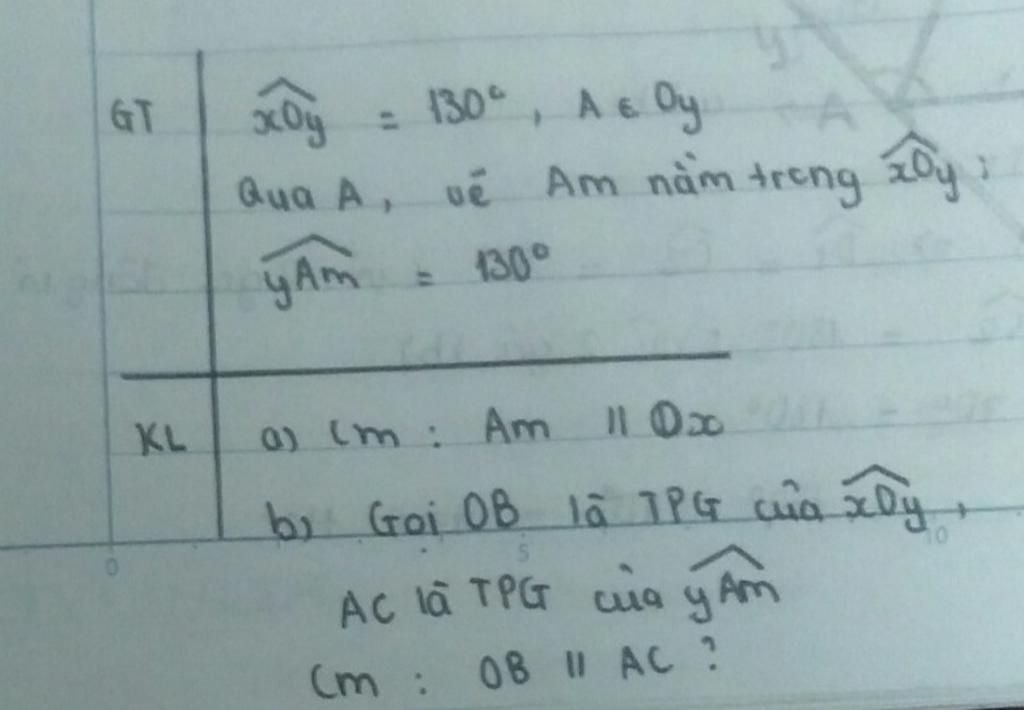 GT xOy = 130°, A ∈ Oy
Qua A, vẽ Am nằm trong xOy ;
yAm = 130°
KL a) Cm : Am // Ox
b) Gọi OB là TPG của xOy,
0 5 10
AC là TPG của yAm
Cm : OB // AC ?